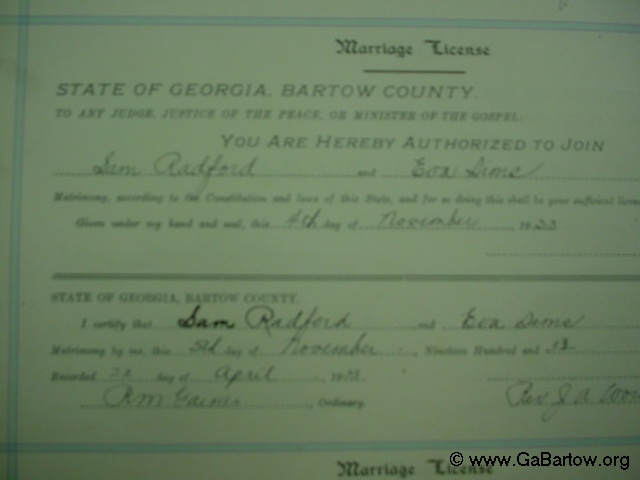 Marriage License
STATE OF GEORGIA, BARTOW COUNTY.
TO ANY JUDGE, JUSTICE OF THE PEACE, OR MINISTER OF THE GOSPEL:
YOU ARE HEREBY AUTHORIZED TO JOIN
Sam Radford and Eva Sims
Matrimony, according to the Constitution and laws of this State, and for so doing this shall be your sufficient
Given under my hand and seal, this 4th day of November, 1933
STATE OF GEORGIA, BARTOW COUNTY.
I certify that Sam Radford and Eva Sims
Matrimony by me, this 5th day of November, Nineteen Hundred and 33
Recorded day of April, 19
Ordinary. Rev. J. A.
Marriage License
© www.GaBartow.org